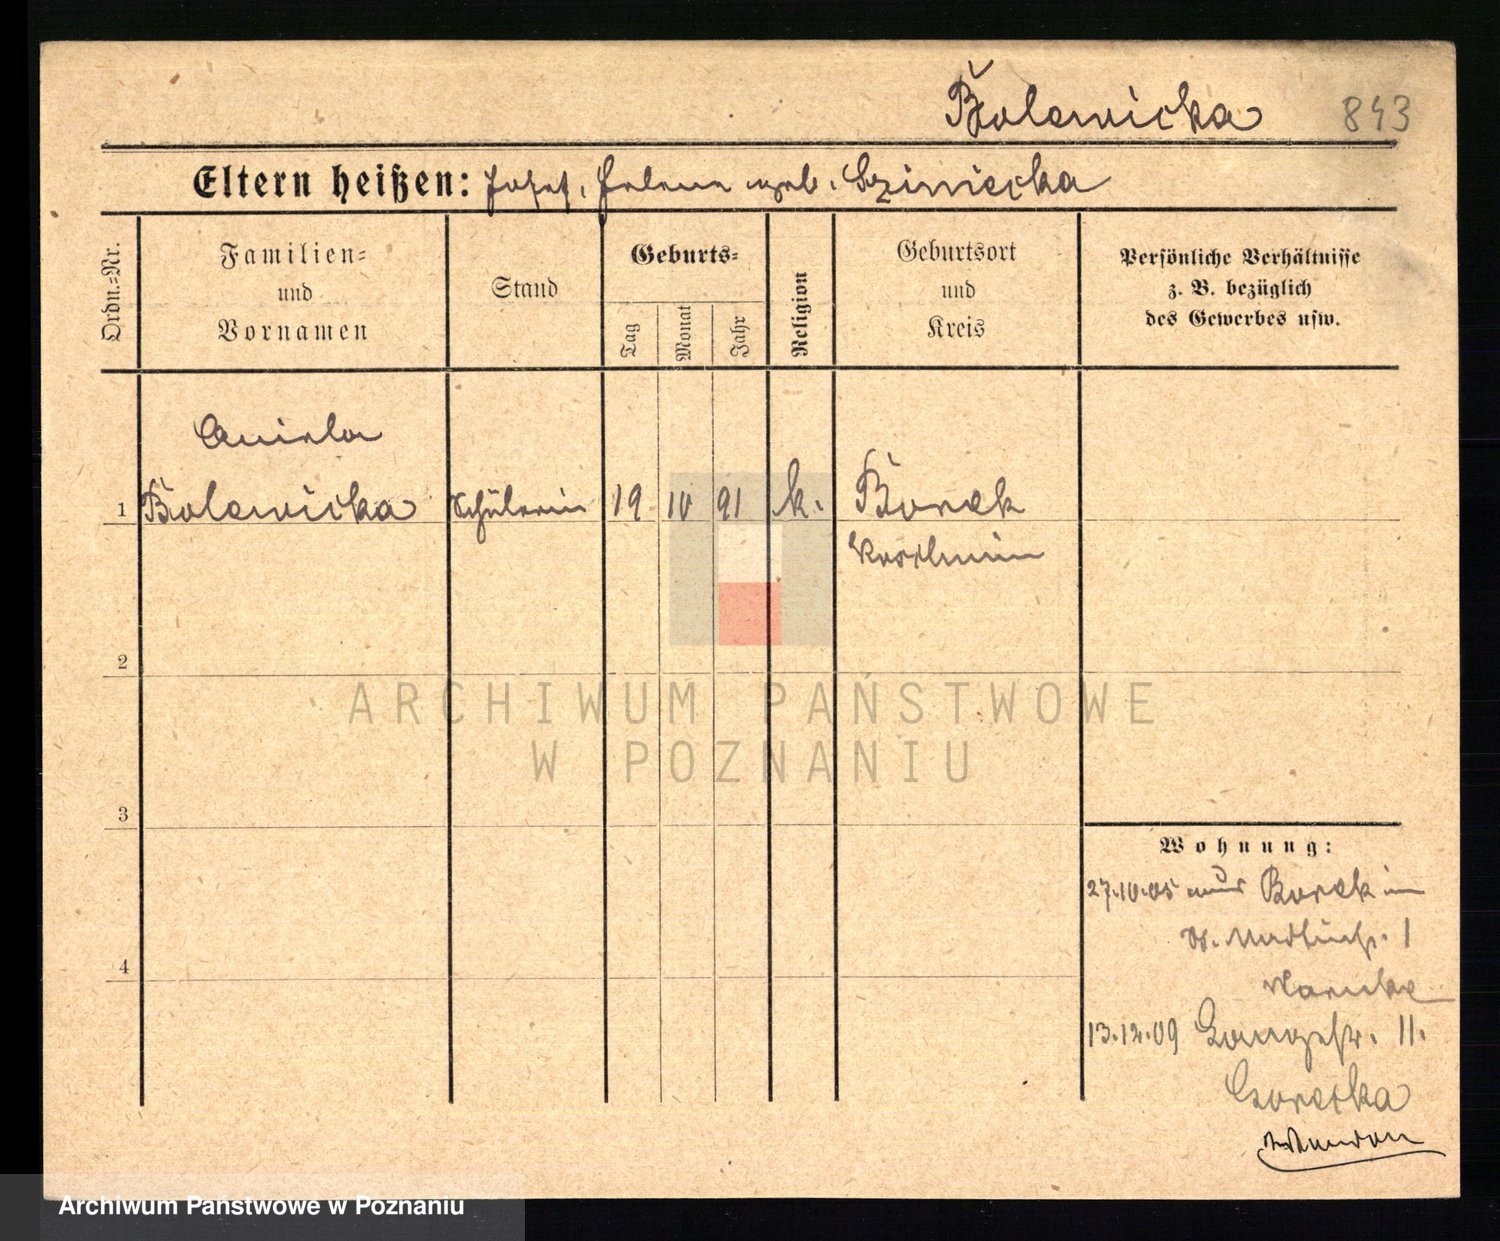 Bolewicka 843
Eltern heißen: Josef, Helene geb.
Ordn.=Nr.
Familien=
und
Vornamen
Stand
Geburts=
Tag
Monat
Jahr
Religion
Geburtsort
und
Kreis
Persönliche Verhältnisse
z. B. bezüglich
des Gewerbes usw.
Aniela
1 Bolewicka Schülerin 19 10 91 k. Borek
Koschmin
2
ARCHIWUM PAŃSTWOWE
W POZNANIU
3
Wohnung:
27.10.05 aus Borek in
1
4
13.12.09 Langestr. 11.
Gorecka
Archiwum Państwowe w Poznaniu